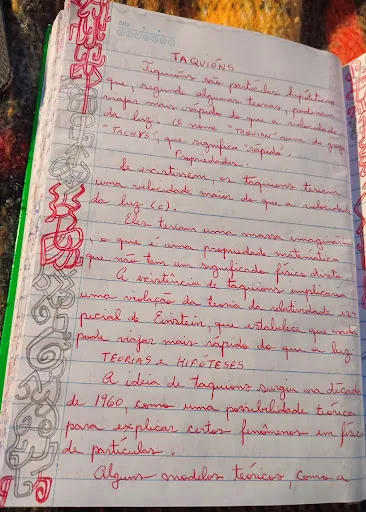 TAQUIÓNS
Taquions são partículas hipotéticas
que, segundo algumas teorias, poderiam
viajar mais rápido do que a velocidade
da luz. O nome "TAQUION" vem do grego
"TACHYS", que significa "rápido".
Propriedades:
Se existissem, os taquions teriam
uma velocidade maior do que a velocidade
da luz (c).
Eles teriam uma massa imaginária
, o que é uma propriedade matemática
que não tem um significado físico direto
A existência de taquions implicaria
uma violação da teoria da relatividade es
pecial de Einstein, que estabelece que nada
pode viajar mais rápido do que a luz
TEORIAS e HIPÓTESES
A idéia de taquions surgiu na década
de 1960, como uma possibilidade teórica
para explicar certos fenômenos em física
de partículas.
Alguns modelos teóricos, como a